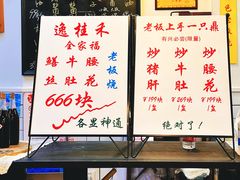 逸桂禾
全家福
鳝牛腰
丝肚花
老板烧
666块
各显神通
老板上手一只鼎
有兴必尝(限量)
炒炒炒
猪牛腰
肝肚花
¥199块 ¥269块 ¥199块
/盘 /盘 /盘
绝对了!